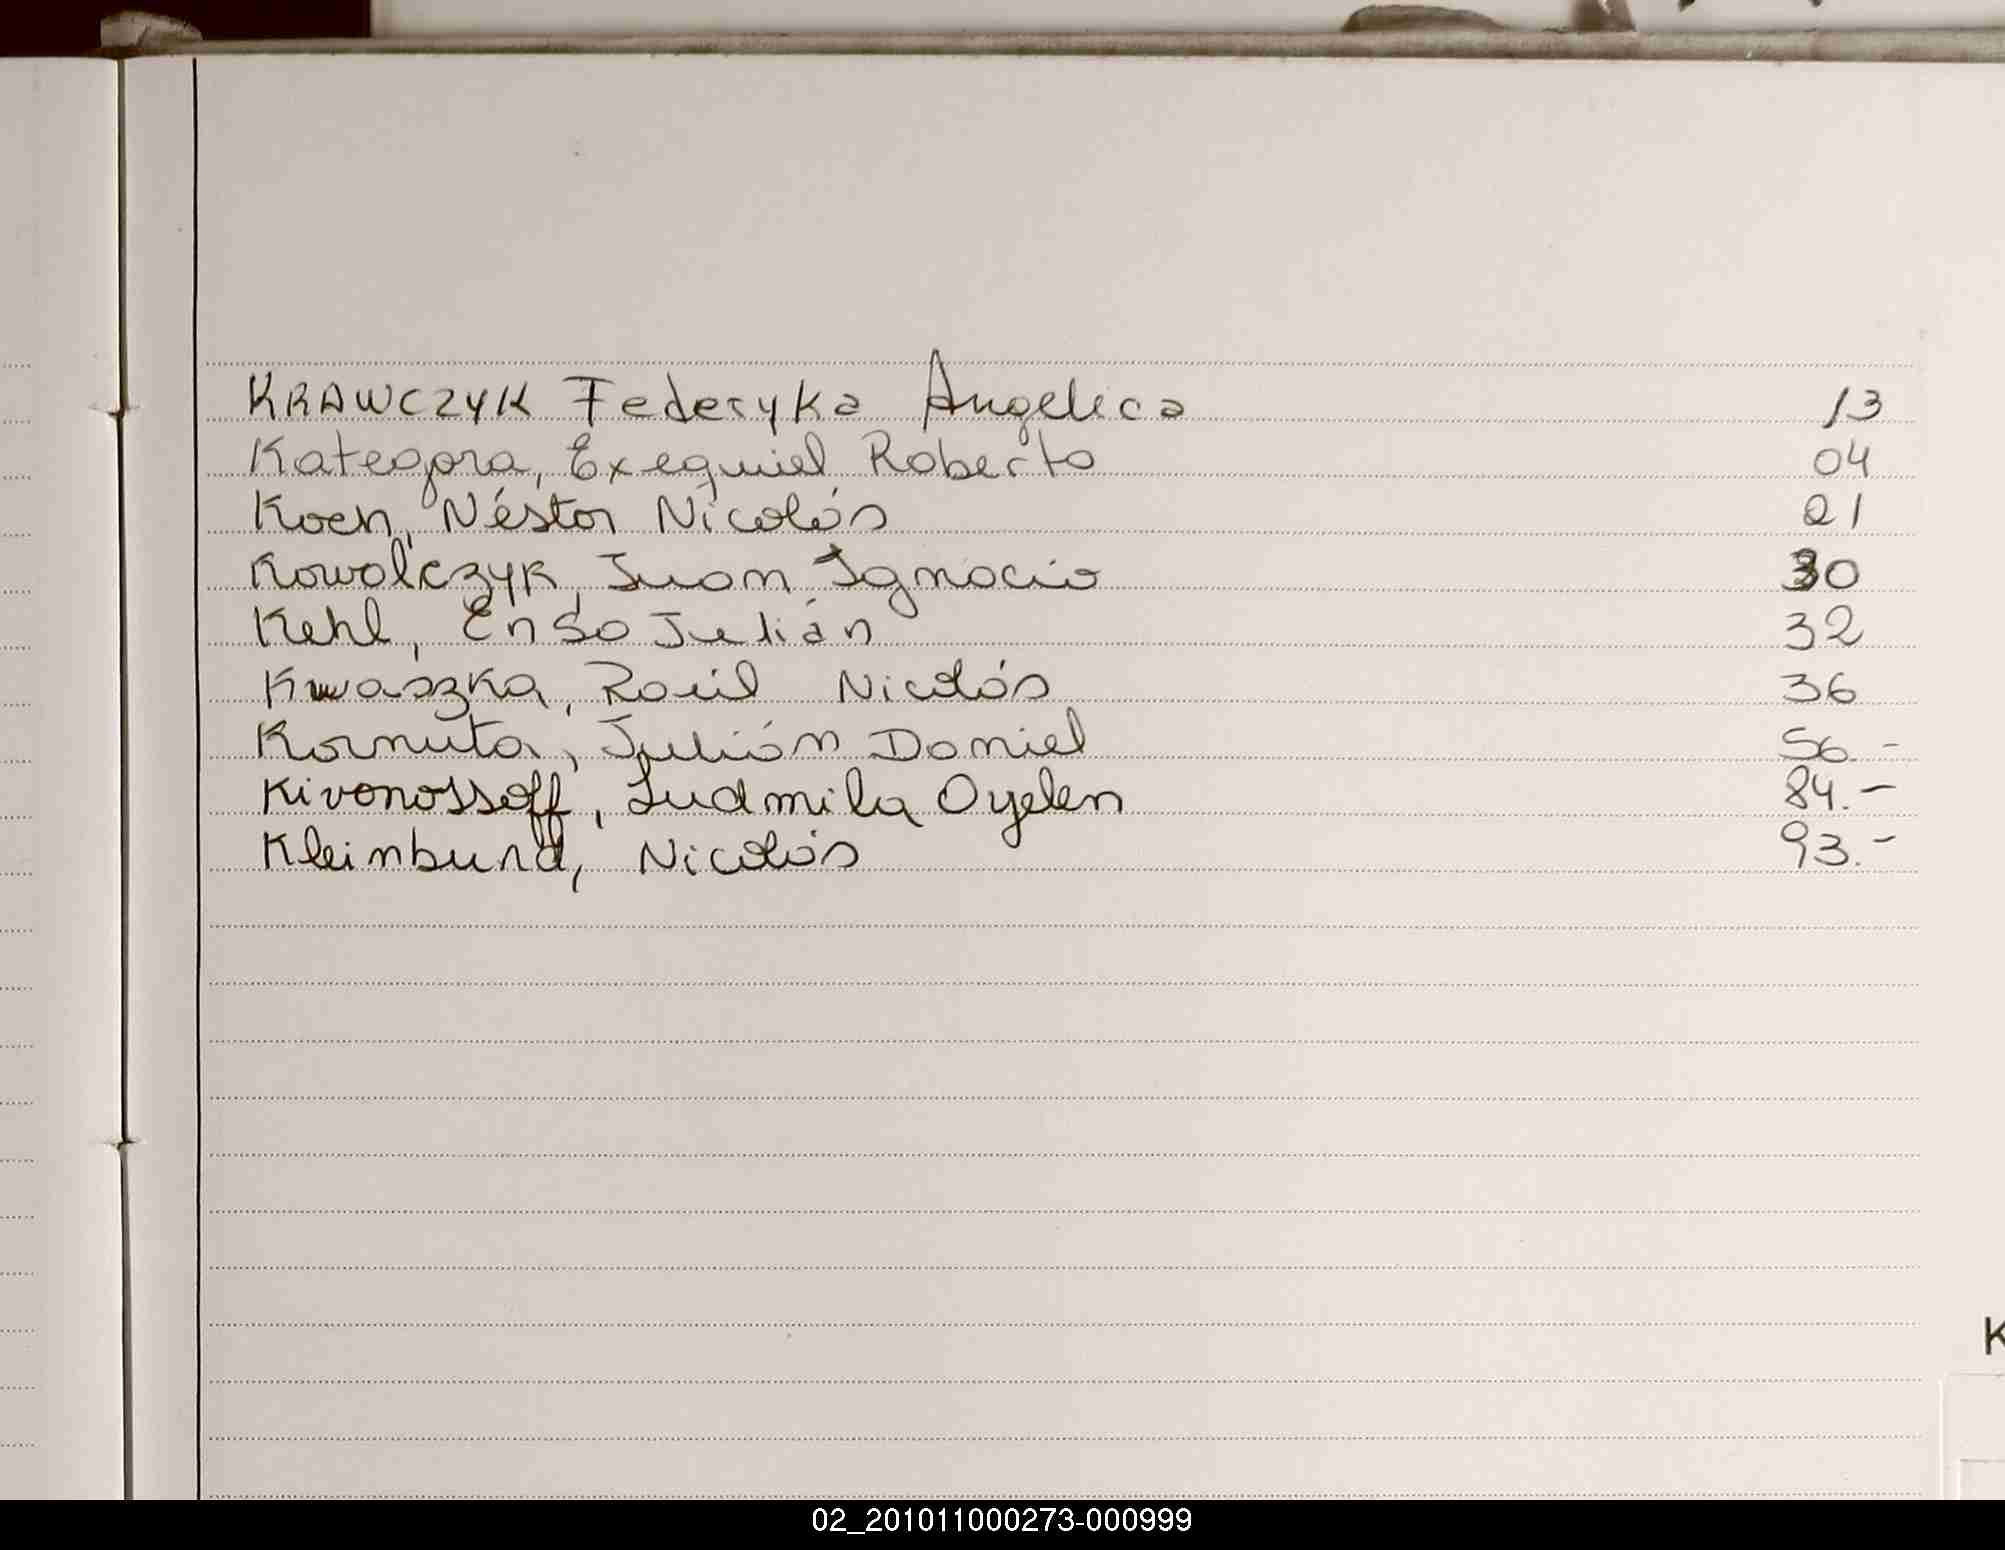 KRAWCZYK Federyka Angelica 13
Kategora, Exequiel Roberto 04
Koch, Néstor Nicolás 21
Kowalczyk, Juan Ignacio 30
Kehl, Enso Julián 32
Kwaszka, Raúl Nicolás 36
Kornuta, Julián Daniel 56.-
Kivonossoff, Ludmila Oyelen 84.-
Kleinbund, Nicolás 93.-
K
02_201011000273-000999